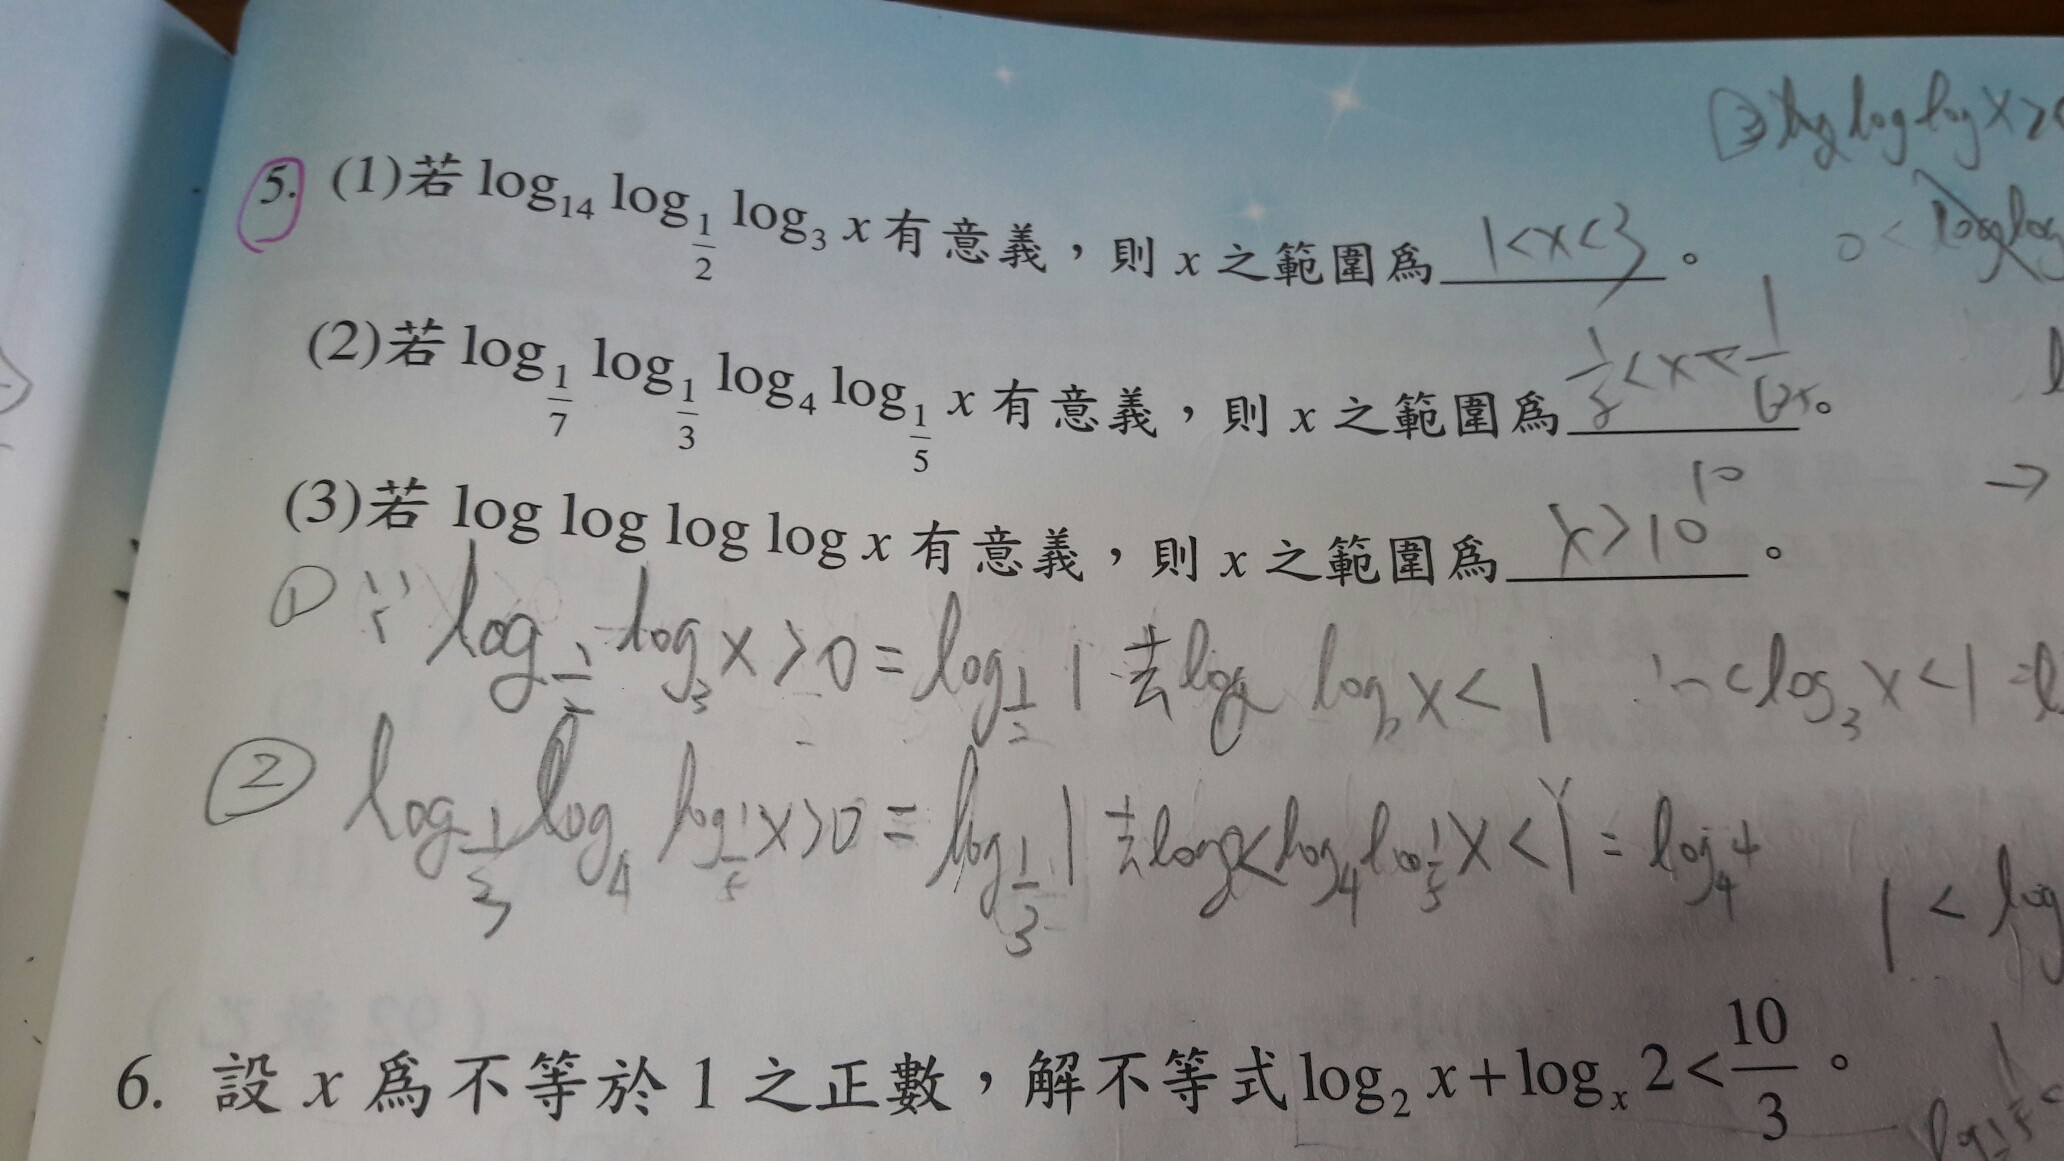 ③ log log log x >
5. (1)若 log₁₄ log_{1/2} log₃ x 有意義，則 x 之範圍爲 1<x<3 。
0 < log log
(2)若 log_{1/7} log_{1/3} log₄ log_{1/5} x 有意義，則 x 之範圍爲 。
(3)若 log log log log x 有意義，則 x 之範圍爲 x>10^10 。
→
① ∵ log_{1/2} log₃ x > 0 = log_{1/2} 1 去log log x < 1 log₃ x < 1 =
② log_{1/3} log₄ log_{1/5} x > 0 = log_{1/3} 1 去log < log₄ log_{1/5} x < 1 = log₄ 4
1 < log
6. 設 x 爲不等於 1 之正數，解不等式 log₂ x + logₓ 2 < 10/3 。